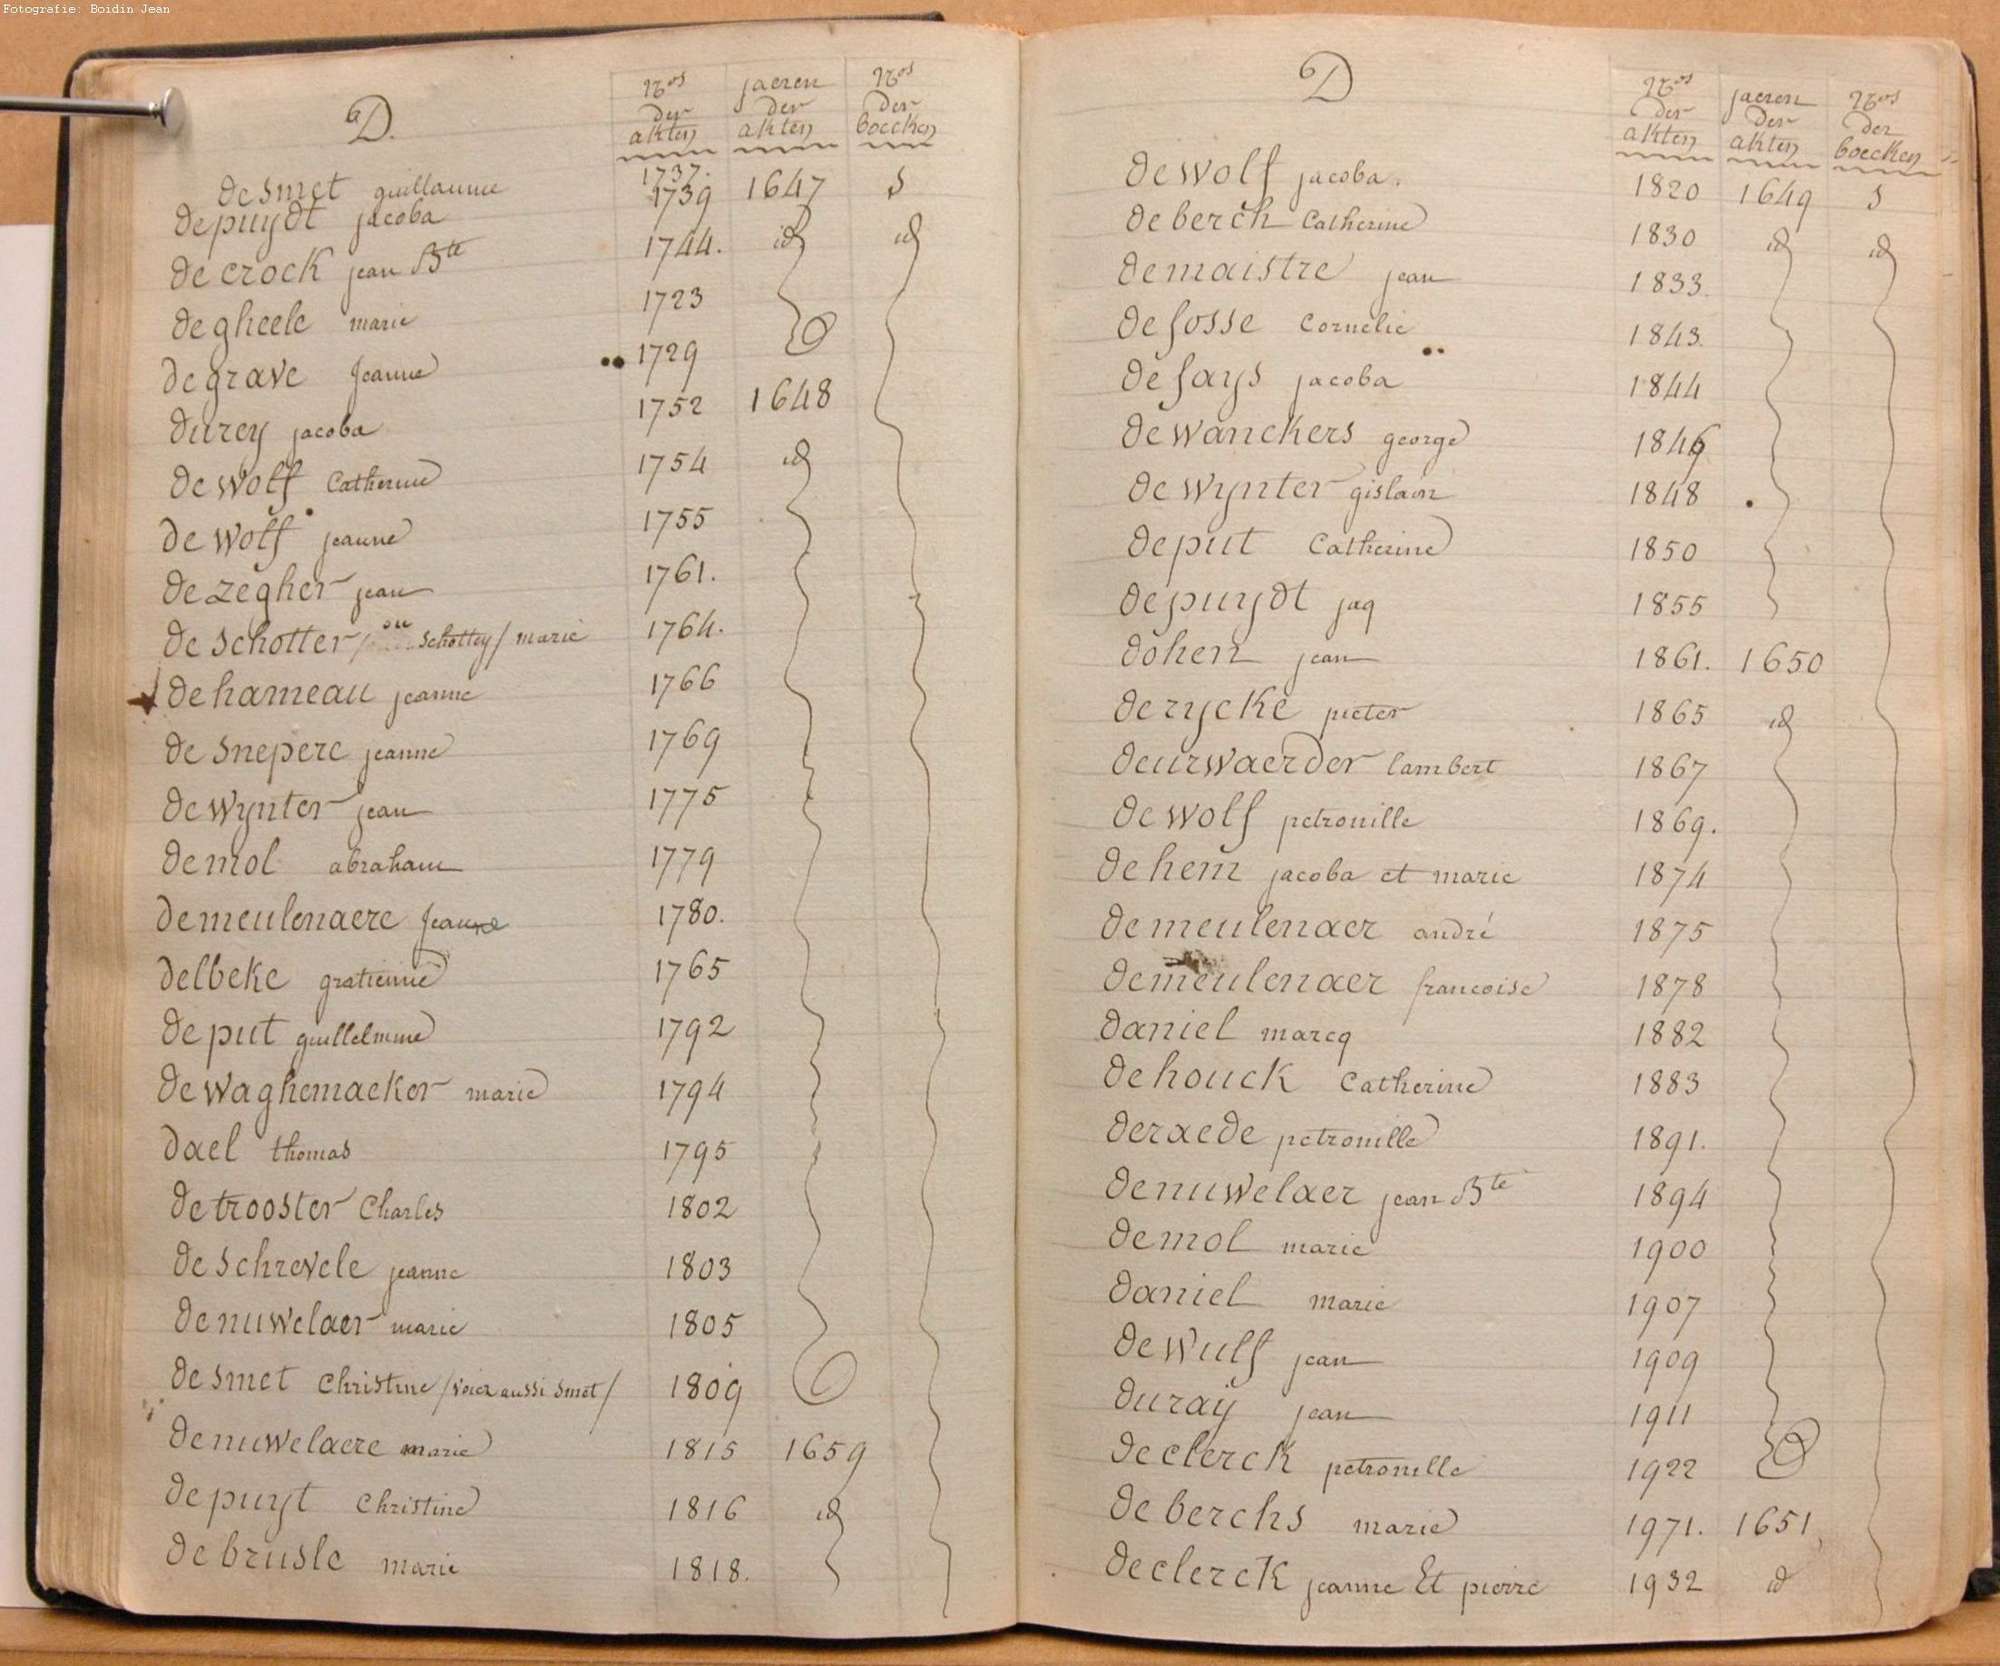 Fotografie: Boidin Jean
D.
Nos der akten
jaeren der akten
Nos der boecken
de smet guillaume 1737.
depuydt jacoba 1739 1647 5
de crock jean Bte 1744. id id
de gheele marie 1723
de grave jeanne 1729
durey jacoba 1752 1648
de wolf Catherine 1754 id
de wolf jeanne 1755
de zegher jean 1761.
de schotter / ou schottey / marie 1764.
de hameau jeanne 1766
de snepere jeanne 1769
de wynter jean 1775
demol abraham 1779
demeulenaere jeanne 1780.
delbeke gratienne 1765
de put guillelmine 1792
de waghemaeker marie 1794
dael thomas 1795
de trooster Charles 1802
de schrevele jeanne 1803
de nuwelaer marie 1805
de smet christine / voiez aussi smet / 1809
de nuwelaere marie 1815 1659
de puyt Christine 1816 id
de brusle marie 1818.
D
Nos der akten
jaeren der akten
Nos der boecken
de wolf jacoba. 1820 1649 5
de berch Catherine 1830 id id
demaistre jean 1833.
de fosse Cornelie 1843.
de fays jacoba 1844
de wanckers george 1846
de wynter gislain 1848
de put Catherine 1850
de puydt jaq 1855
dohen jean 1861. 1650
de rycke pieter 1865 id
deurwaerder lambert 1867
de wolf petronille 1869.
de hem jacoba et marie 1874
demeulenaer andré 1875
demeulenaer francoise 1878
daniel marcq 1882
de houck Catherine 1883
deraede petronille 1891.
denuwelaer jean Bte 1894
demol marie 1900
daniel marie 1907
de wulf jean 1909
duray jean 1911
de clerck petronille 1922
de berchs marie 1971. 1651
declerck jeanne Et pierre 1932 id